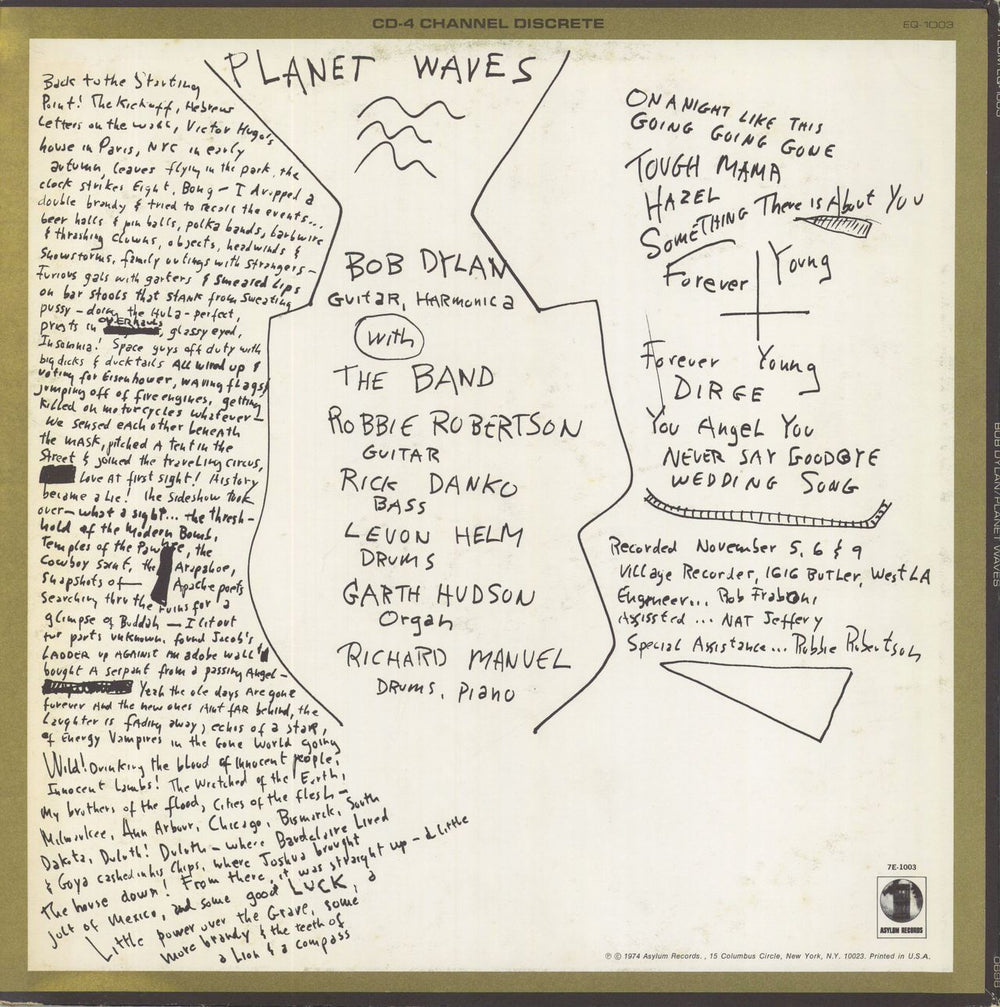 CD-4 CHANNEL DISCRETE
EQ-1003
PLANET WAVES
Back to the Starting
Point! The Kickoff, Hebrew
Letters on the wall, Victor Hugo's
house in Paris, NYC in early
autumn, leaves flying in the park, the
clock strikes Eight, Bong - I dropped a
double brandy & tried to recall the events...
beer halls & pin balls, polka bands, barbwire
& thrashing clowns, objects, headwinds &
Snowstorms, family outings with strangers -
Furious gals with garters & smeared lips
on bar stools that stank from sweating
pussy - doing the Hula - perfect,
priests in OVERHAULS, glassy eyed,
Insomnia! Space guys off duty with
big dicks & ducktails All wired up &
voting for Eisenhower, waving flags &
jumping off of fire engines, getting
killed on motorcycles whatever -
We sensed each other beneath
the mask, pitched a tent in the
Street & joined the traveling circus,
Love at first sight! History
became a Lie! the sideshow took
over - what a sight... the thresh-
hold of the Modern Bomb,
Temples of the Pawnee, the
Cowboy saint, the Arapahoe,
Snapshots of - Apache poets
Searching thru the ruins for a
glimpse of Buddah - I lit out
for parts unknown, found Jacob's
LADDER up AGAINST an adobe wall &
bought A serpant from a passing Angel -
Yeah the ole days Are gone
forever And the new ones Aint fAR behind, the
Laughter is fading away, echos of a star,
of Energy Vampires in the Gone World going
Wild! Drinking the blood of innocent people,
Innocent Lambs! The Wretched of the Earth,
My brothers of the flood, Cities of the flesh -
Milwaukee, Ann Arbour, Chicago, Bismarck, South
Dakota, Duluth! Duluth - where Baudelaire Lived
& Goya cashed in his Chips, where Joshua brought
the house down! From there, it was straight up - a little
jolt of Mexico, and some good LUCK, a
Little power over the Grave, some
more brandy & the teeth of
a Lion & a compass
BOB DYLAN
Guitar, HARMONICA
with
THE BAND
ROBBIE ROBERTSON
GUITAR
RICK DANKO
BASS
LEVON HELM
DRUMS
GARTH HUDSON
Organ
RICHARD MANUEL
DRUMS, Piano
ON A NIGHT LIKE THIS
GOING GOING GONE
TOUGH MAMA
HAZEL
SOMETHING There is About You
Forever Young
Forever Young
DIRGE
You Angel You
NEVER SAY GOODBYE
WEDDING SONG
Recorded November 5, 6 & 9
Village Recorder, 1616 Butler, West LA
Engineer... Rob Fraboni
Assissted ... NAT Jeffery
Special Assistance... Robbie Robertson
7E-1003
ASYLUM RECORDS
℗ © 1974 Asylum Records., 15 Columbus Circle, New York, N.Y. 10023. Printed in U.S.A.
BOB DYLAN/PLANET WAVES